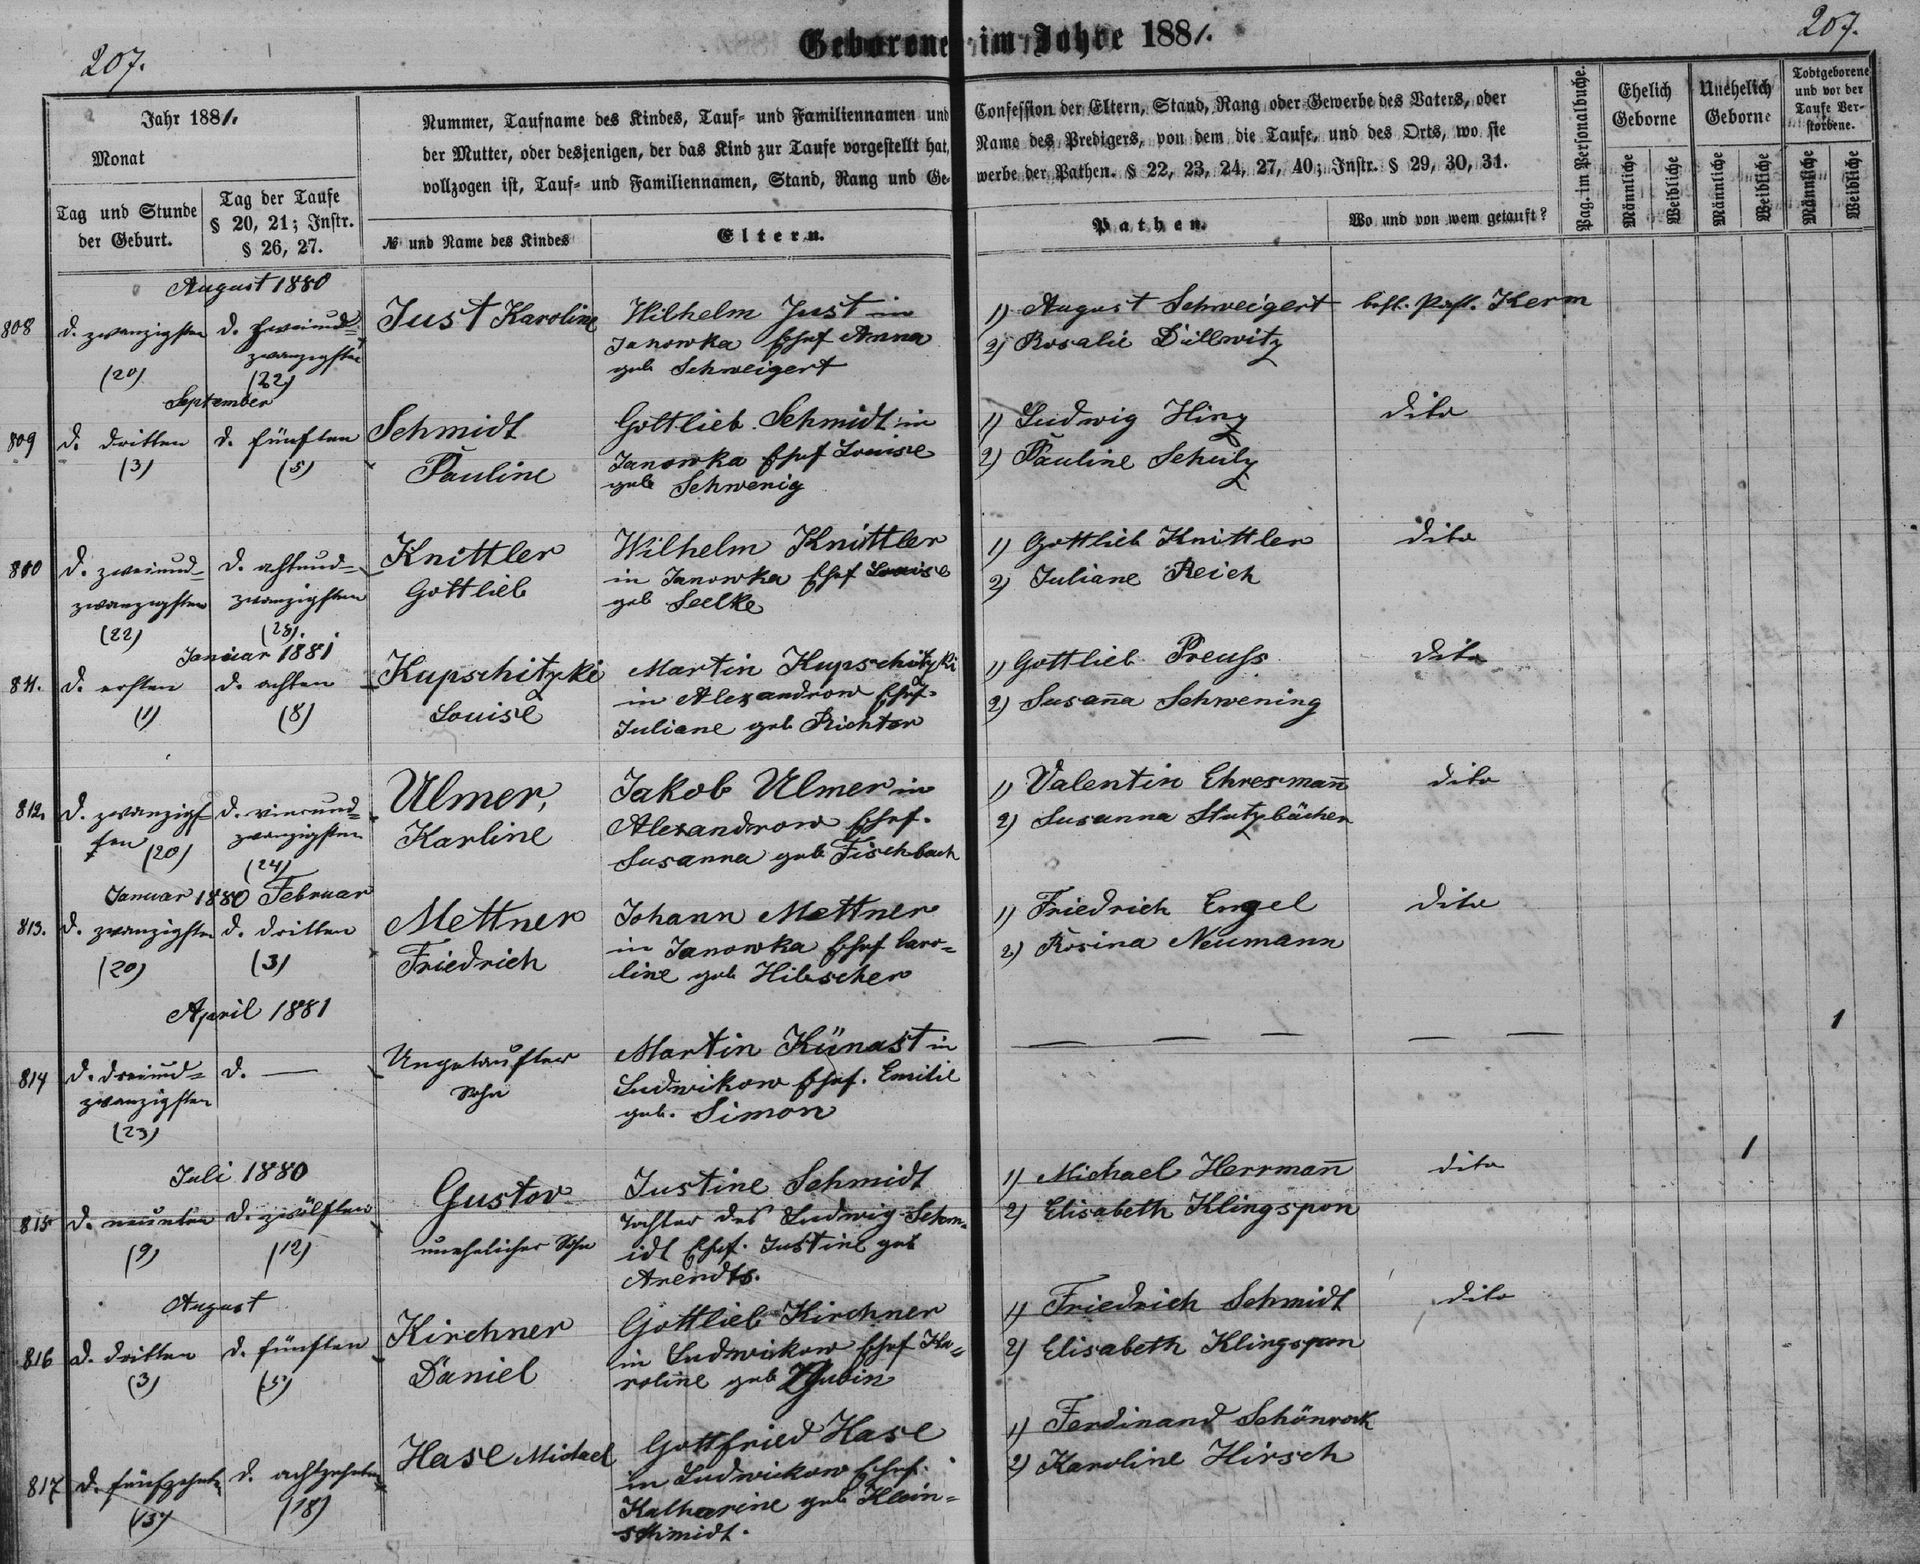 207.
Geborene im Jahre 1881.
207.
Jahr 1881.
Monat
Tag und Stunde
der Geburt.
Tag der Taufe
§ 20, 21; Instr.
§ 26, 27.
Nummer, Taufname des Kindes, Tauf- und Familiennamen und
der Mutter, oder desjenigen, der das Kind zur Taufe vorgestellt hat,
vollzogen ist, Tauf- und Familiennamen, Stand, Rang und Ge-
№ und Name des Kindes
Eltern.
Confession der Eltern, Stand, Rang oder Gewerbe des Vaters, oder
Name des Predigers, von dem die Taufe, und des Orts, wo sie
werbe der Pathen. § 22, 23, 24, 27, 40; Instr. § 29, 30, 31.
Pathen.
Wo und von wem getauft?
Pag. im Personalbuche.
Ehelich
Geborne
Männliche
Weibliche
Unehelich
Geborne
Männliche
Weibliche
Todtgeborene
und vor der
Taufe Ver-
storbene.
Männliche
Weibliche
August 1880
808
d. zwanzigsten
(20)
d. zweiund-
zwanzigsten
(22)
Just Karoline
Wilhelm Just in
Janowka Ehef Anna
geb Schweigert
1) August Schweigert
2) Rosalie Dillwitz
best. Past. Kerm
September
809
d. dritten
(3)
d. fünften
(5)
Schmidt
Pauline
Gottlieb Schmidt in
Janowka Ehef Louise
geb Schwenig
1) Ludwig Hinz
2) Pauline Schulz
dito
810
d. zweiund-
zwanzigsten
(22)
d. achtund-
zwanzigsten
(28).
Knittler
Gottlieb
Wilhelm Knittler
in Janowka Ehef Louise
geb Seelke
1) Gottlieb Knittler
2) Juliane Reich
dito
Januar 1881
811.
d. ersten
(1)
d. achten
(8)
Kupschitzki
Louise
Martin Kupschitzki
in Alexandrow Ehef.
Juliane geb Richter
1) Gottlieb Preuss
2) Susan̄a Schwening
dito
812.
d. zwanzigs
ten (20)
d. vierund-
zwanzigsten
(24)
Ulmer,
Karline
Jakob Ulmer in
Alexandrow Ehef.
Susanna geb Fischbach
1) Valentin Ehresman̄
2) Susanna Stutzbächer
dito
Januar 1880 Februar
813.
d. zwanzigsten
(20)
d. dritten
(3)
Mettner
Friedrich
Johann Mettner
in Janowka Ehef Caro-
line geb Hibscher
1) Friedrich Engel
2) Rosina Neumann
dito
April 1881
814
d. dreiund-
zwanzigsten
(23)
d. —
Ungetaufter
Sohn
Martin Künast in
Ludwikow Ehef. Emilie
geb. Simon
— — — —
1
Juli 1880
815
d. neunten
(9)
d. zwölften
(12)
Gustav
unehelicher Sohn
Justine Schmidt
Tochter des Ludwig Schm-
idt Ehef. Justine geb
Arendts.
1) Michael Herrman̄
2) Elisabeth Klingspon
dito
1
August
816
d. dritten
(3)
d. fünften
(5)
Kirchner
Daniel
Gottlieb Kirchner
in Ludwickow Ehef Ka-
roline geb
1) Friedrich Schmidt
2) Elisabeth Klingspon
dito
817
d. fünfzehnten
(15)
d. achtzehnten
(18)
Hase Michael
Gottfried Hase
in Ludwickow Ehef.
Katharine geb Klein-
schmidt.
1) Ferdinand Schönrock
2) Karoline Hirsch